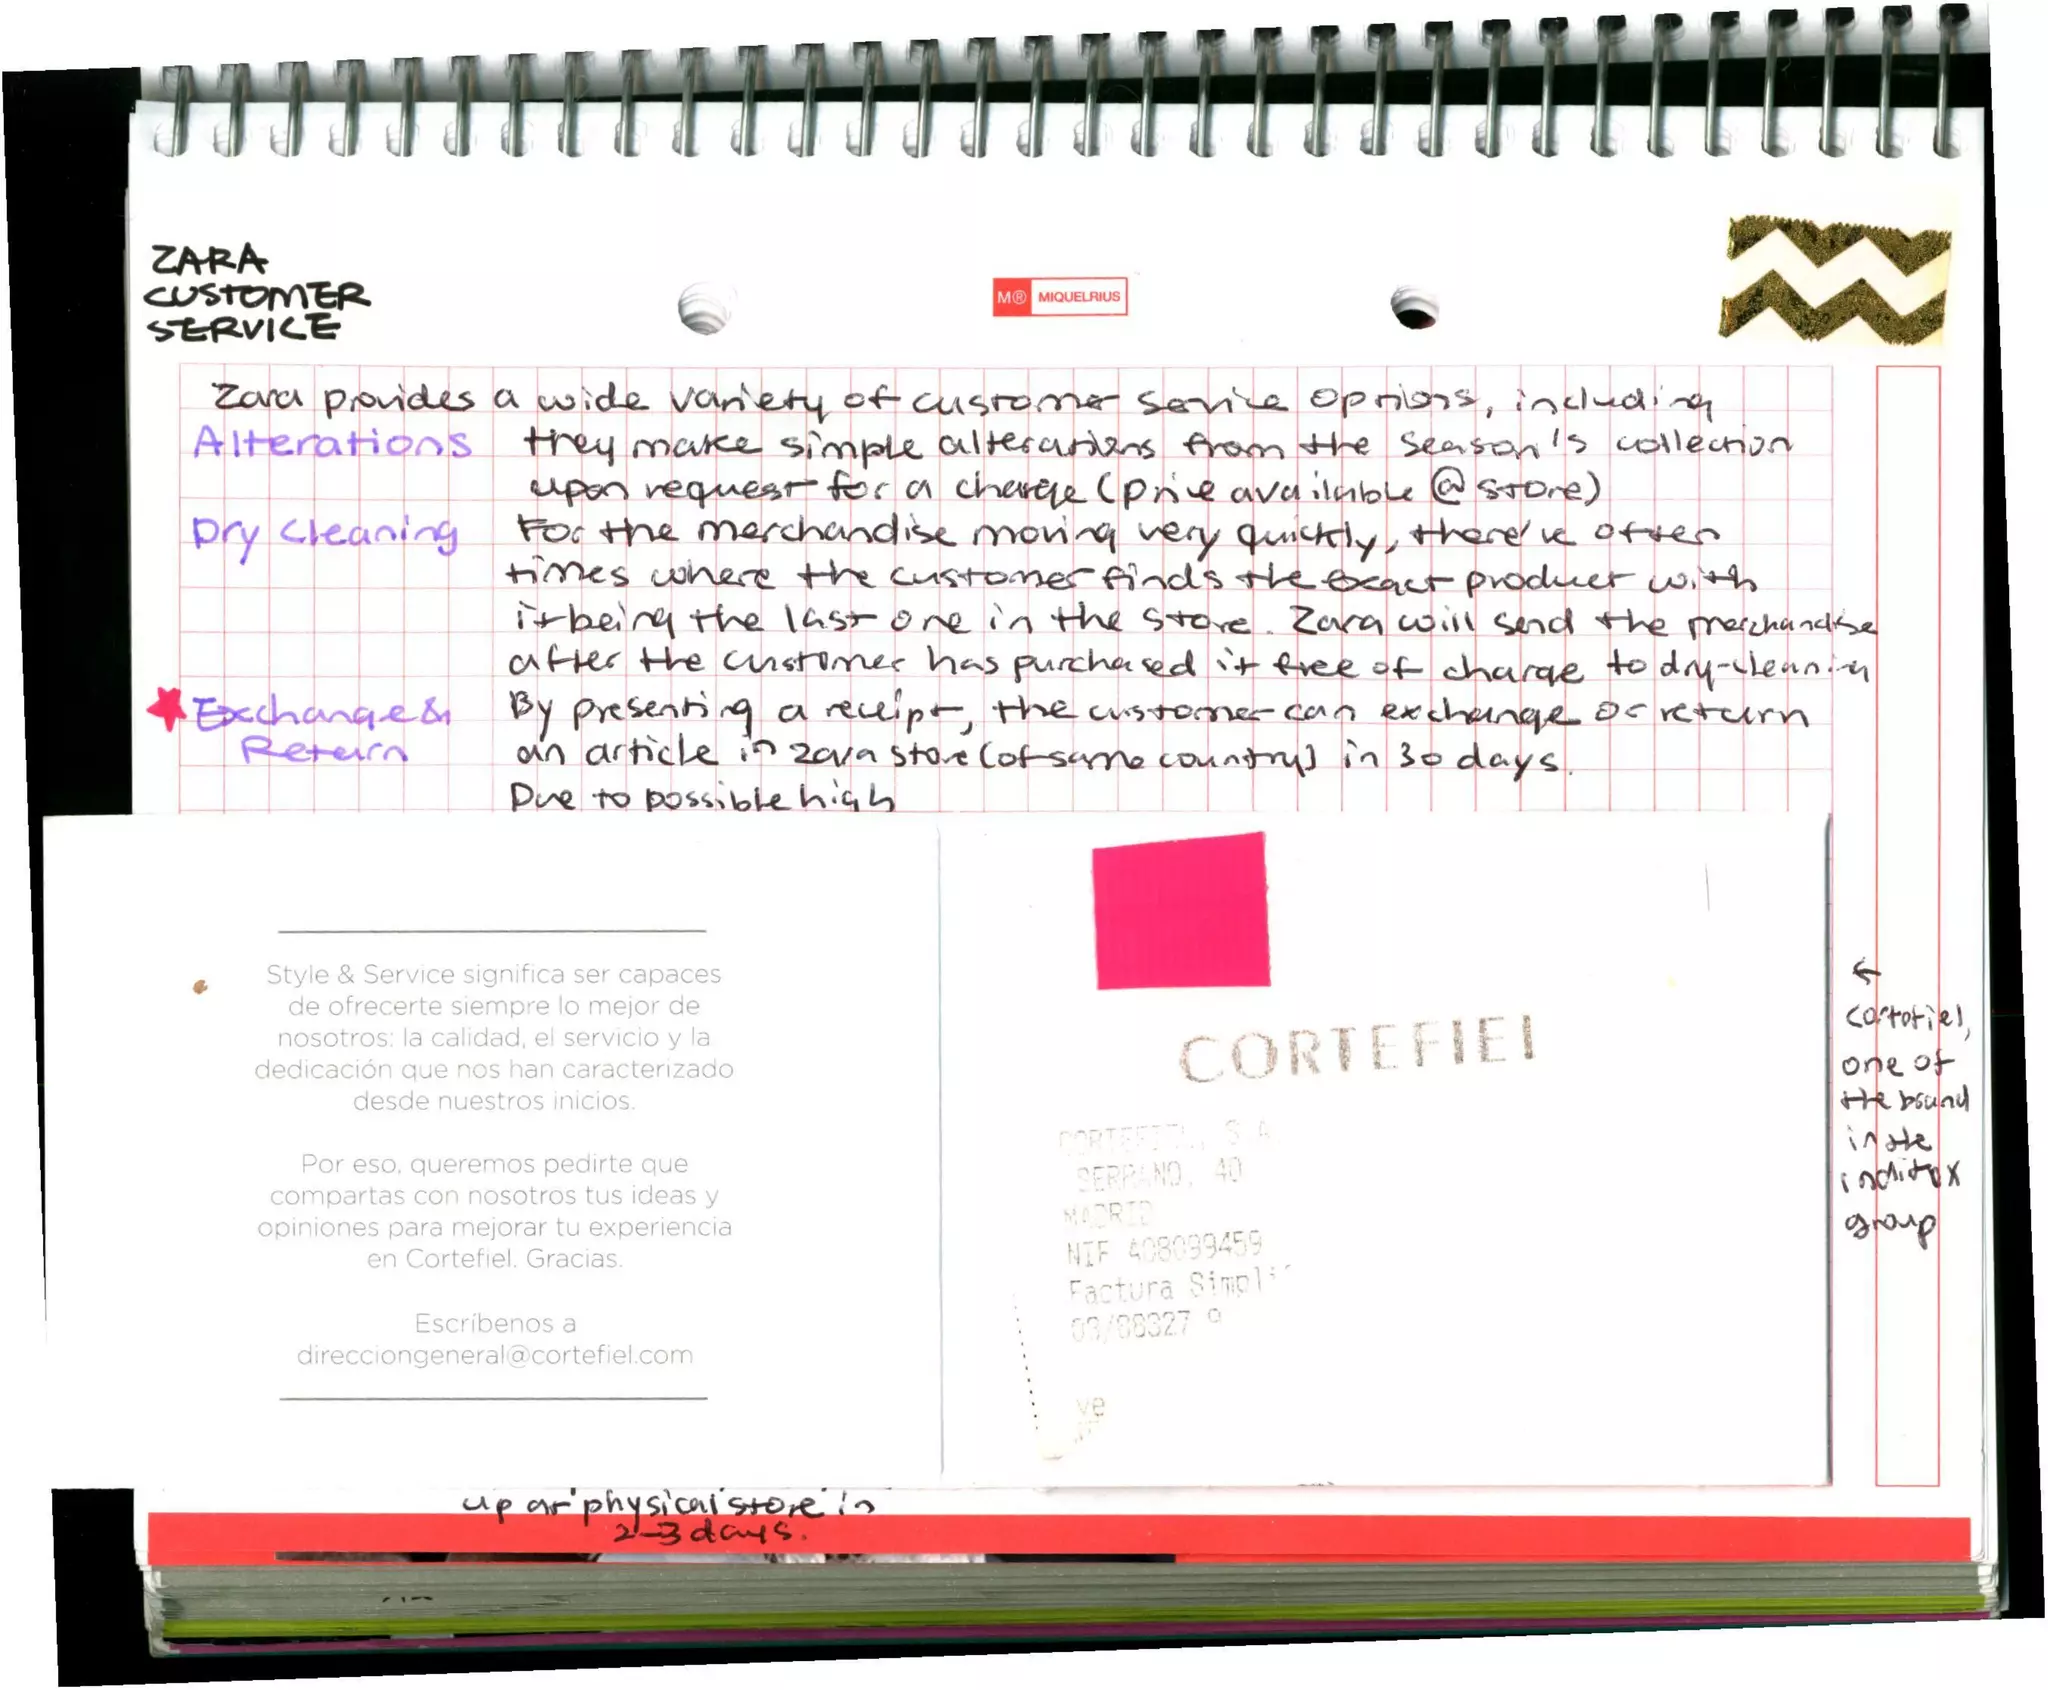 ZARA
CUSTOMER
SERVICE
M® MIQUELRIUS
Zara provides a wide variety of customer service options, including
Alterations they make simple alterations from the season's collection
upon request for a charge (price available @ store)
Dry Cleaning For the merchandise moving very quickly, there're often
times where the customer finds the exact product with
it being the last one in the store. Zara will send the merchandise
after the customer has purchased it free of charge to dry-cleaning
Exchange & By presenting a receipt, the customer can exchange or return
Return an article in zara store (of same country) in 30 days.
Due to possible high
Style & Service significa ser capaces
de ofrecerte siempre lo mejor de
nosotros: la calidad, el servicio y la
dedicación que nos han caracterizado
desde nuestros inicios.
Por eso, queremos pedirte que
compartas con nosotros tus ideas y
opiniones para mejorar tu experiencia
en Cortefiel. Gracias.
Escríbenos a
direcciongeneral@cortefiel.com
CORTEFIEL
CORTEFIEL, S.A.
SERRANO, 40
MADRID
NIF A08099459
Factura Simpli
03/88327 9
ve
←
Cortefiel,
one of
the brand
in the
inditex
group
up at physical store in
2-3 days.